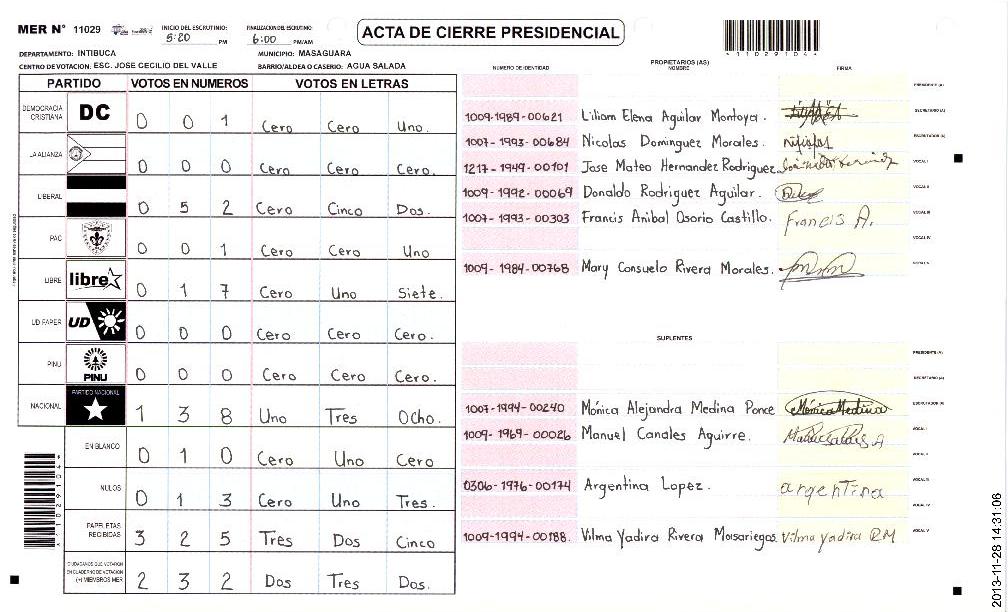 MER Nº 11029 INICIO DEL ESCRUTINIO: 5:20 PM FINALIZACION DEL ESCRUTINIO: 6:00 PM/AM
ACTA DE CIERRE PRESIDENCIAL
DEPARTAMENTO: INTIBUCA MUNICIPIO: MASAGUARA
CENTRO DE VOTACION: ESC. JOSE CECILIO DEL VALLE BARRIO/ALDEA O CASERIO: AGUA SALADA
PARTIDO VOTOS EN NUMEROS VOTOS EN LETRAS
DEMOCRACIA CRISTIANA DC 0 0 1 Cero Cero Uno.
LA ALIANZA 0 0 0 Cero Cero Cero.
LIBERAL 0 5 2 Cero Cinco Dos.
PAC 0 0 1 Cero Cero Uno
LIBRE libre 0 1 7 Cero Uno Siete.
UD FAPER UD 0 0 0 Cero Cero Cero.
PINU PINU 0 0 0 Cero Cero Cero.
NACIONAL PARTIDO NACIONAL 1 3 8 Uno Tres Ocho.
EN BLANCO 0 1 0 Cero Uno Cero
NULOS 0 1 3 Cero Uno Tres.
PAPELETAS RECIBIDAS 3 2 5 Tres Dos Cinco
CIUDADANOS QUE VOTARON EN CUADERNO DE VOTACION (+) MIEMBROS MER 2 3 2 Dos Tres Dos.
*11029104*
PROPIETARIOS (AS)
NUMERO DE IDENTIDAD NOMBRE FIRMA
PRESIDENTE (A)
1009-1989-00621 Liliam Elena Aguilar Montoya. SECRETARIO (A)
1007-1993-00684 Nicolas Dominguez Morales. ESCRUTADOR (A)
1217-1949-00101 Jose Mateo Hernandez Rodriguez VOCAL I
1009-1992-00069 Donaldo Rodriguez Aguilar. VOCAL II
1007-1993-00303 Francis Anibal Osorio Castillo. Francis A. VOCAL III
VOCAL IV
1009-1984-00768 Mary Consuelo Rivera Morales. VOCAL V
SUPLENTES
PRESIDENTE (A)
SECRETARIO (A)
1007-1994-00240 Mónica Alejandra Medina Ponce Mónica Medina ESCRUTADOR (A)
1009-1969-00026 Manuel Canales Aguirre. VOCAL I
VOCAL II
0306-1976-00174 Argentina Lopez. argentina VOCAL III
VOCAL IV
1009-1994-00188. Vilma Yadira Rivera Moisariegos. Vilma Yadira RM VOCAL V
*11029104*
2013-11-28 14:31:06